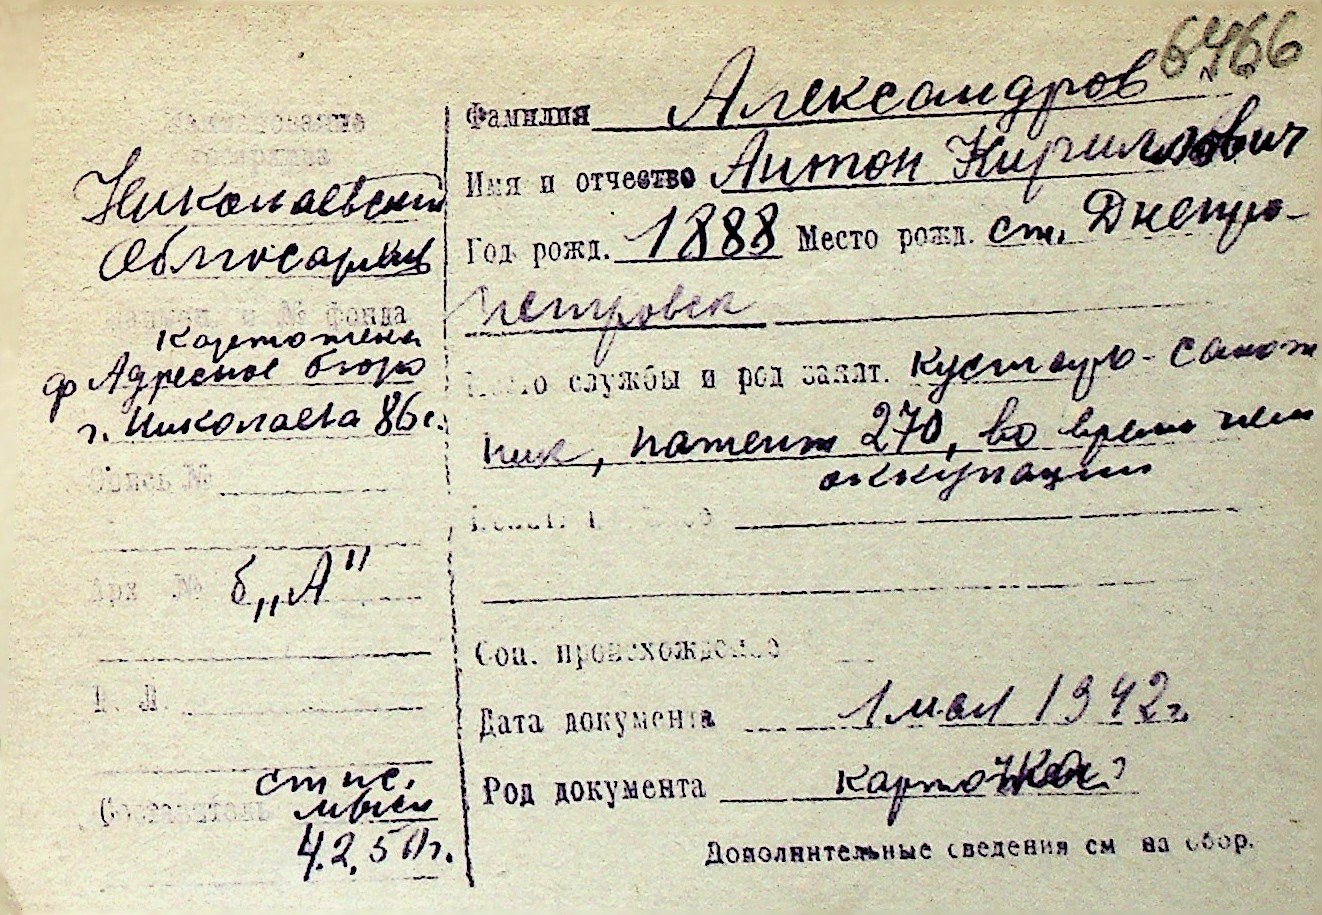 6466
Наименование
госархива
Николаевский
Облгосархив
№ фонда
Картотека
ф Адресное бюро
г. Николаева 86с.
Опись №
Арх №
б„А"
Составитель
ст пс.
4.2.50г.
Фамилия Александров
Имя и отчество Антон Кириллович
Год рожд. 1888 Место рожд. ст. Днепро-
петровск
Место службы и род занят. кустарь-
ник, патент 270, во время нем
оккупации
Соц. происхождение
Дата документа 1 мая 1942г.
Род документа карточка
Дополнительные сведения см на обор.